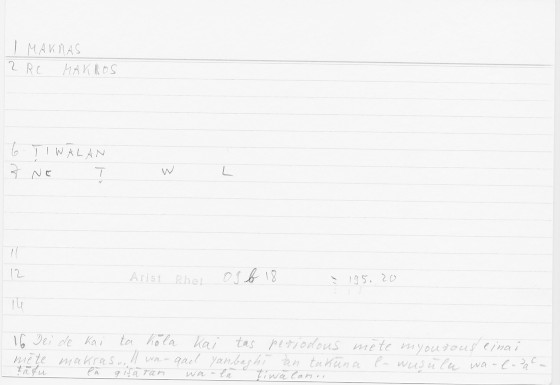 1 MAKRAS
2 RC MAKROS
6 ṬIWĀLAN
7 NC Ṭ W L
11
12 Arist Rhet 09 b 18 = 195. 20
14
16 Dei de kai ta kôla kai tas periodous mête myourous einai
mête makras.. // wa-qad yanbaghī an takūna l- wuṣūlu wa-l-
lā qiṣāran wa-lā ṭiwālan..